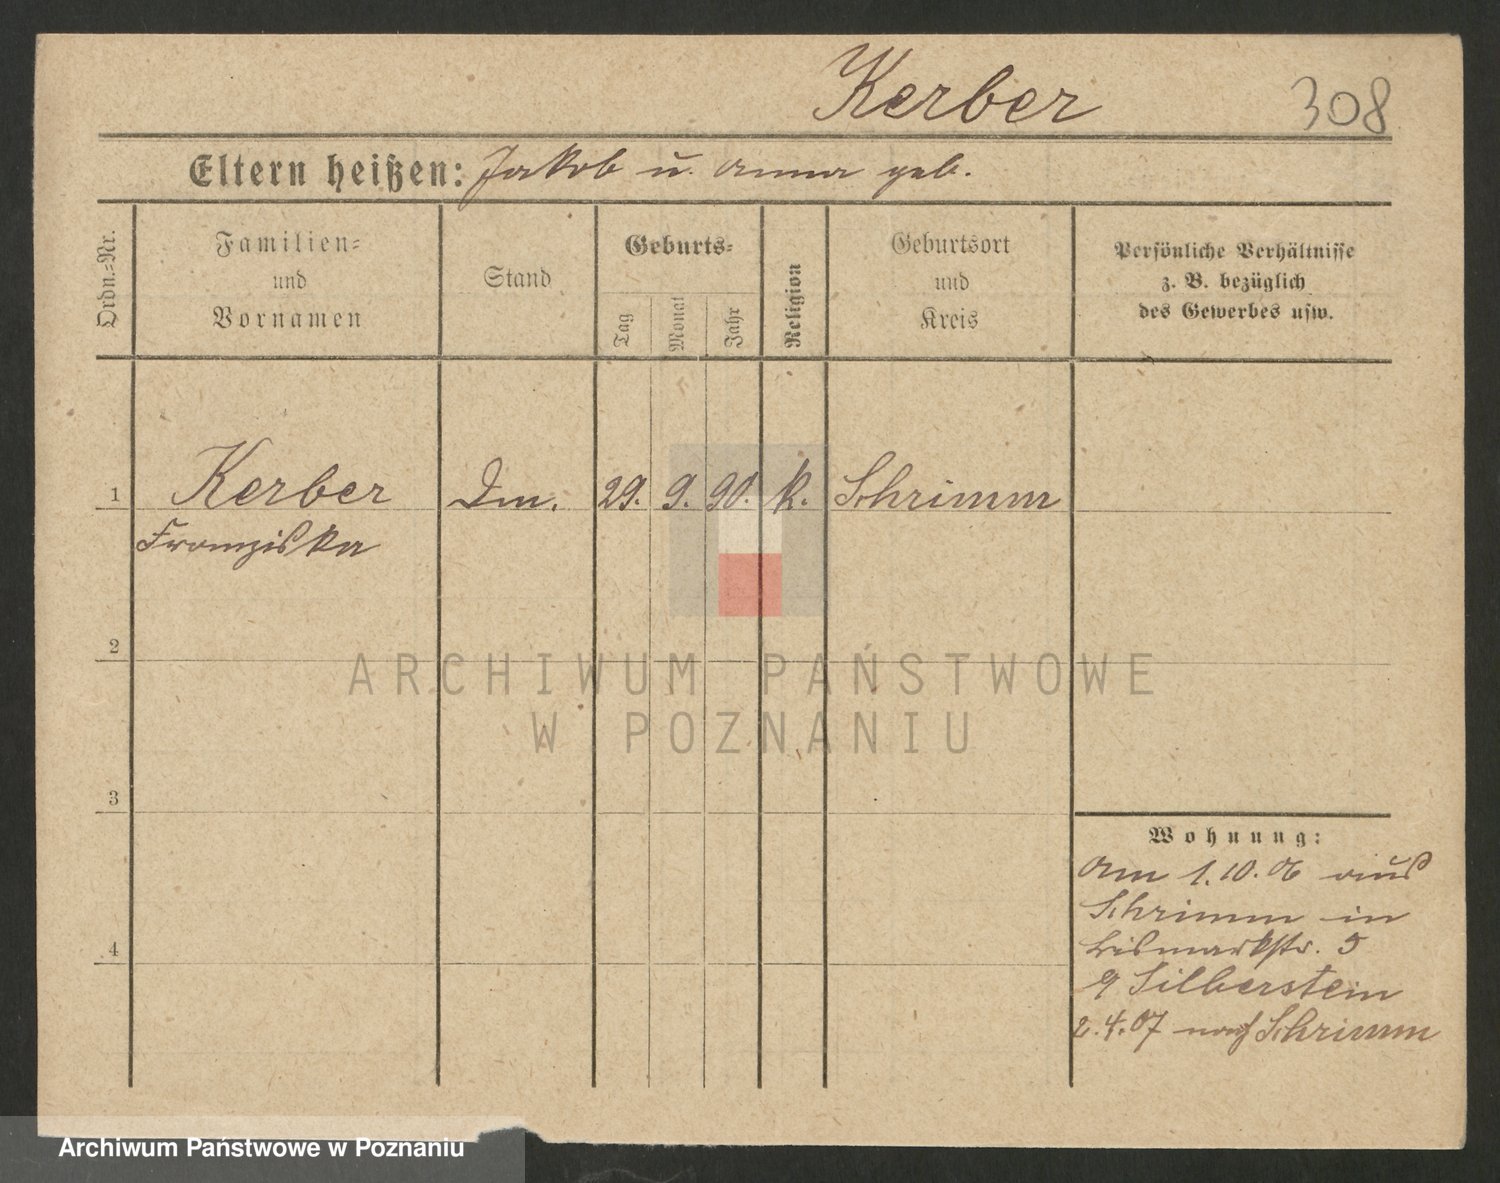 Kerber
308
Eltern heißen: Jakob u. Anna geb.
Ordn.-Nr.
Familien-
und
Vornamen
Stand
Geburts-
Tag
Monat
Jahr
Religion
Geburtsort
und
Kreis
Persönliche Verhältnisse
z. B. bezüglich
des Gewerbes usw.
1 Kerber Dm. 29. 9. 90. k. Schrimm
Franziska
2
3
4
Wohnung:
am 1.10.06 aus
Schrimm in
Bismarkstr. 5
Silberstein
2.4.07 nach Schrimm
ARCHIWUM PAŃSTWOWE
W POZNANIU
Archiwum Państwowe w Poznaniu